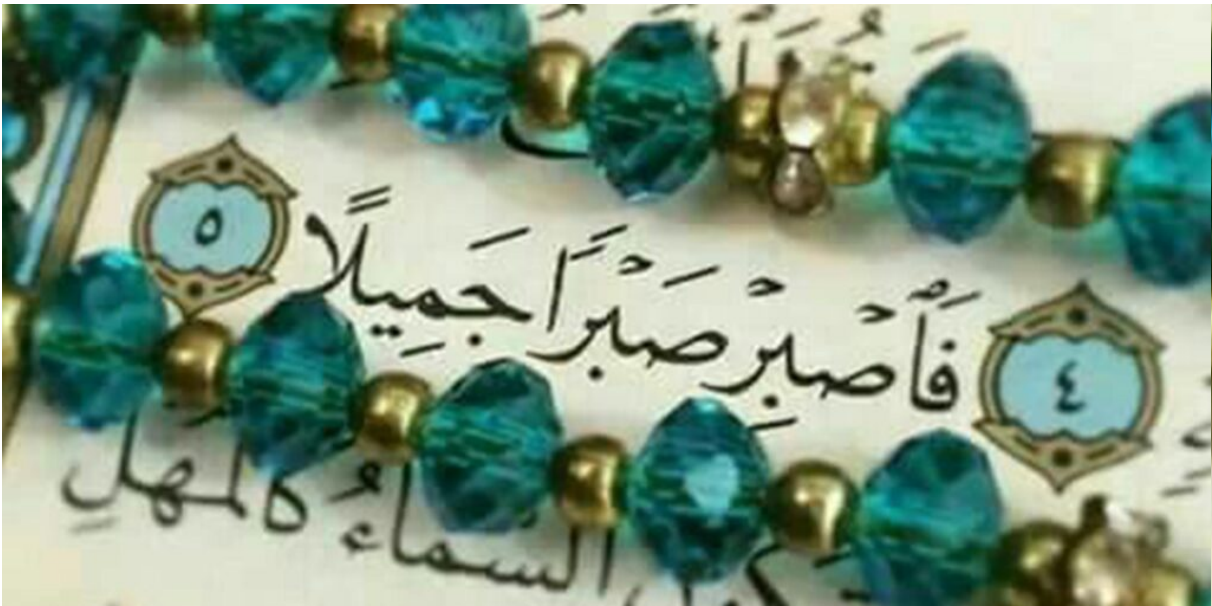 ٤ فَٱصْبِرْ صَبْرًا جَمِيلًا ٥
السَّمَاءُ كَالْمُهْلِ